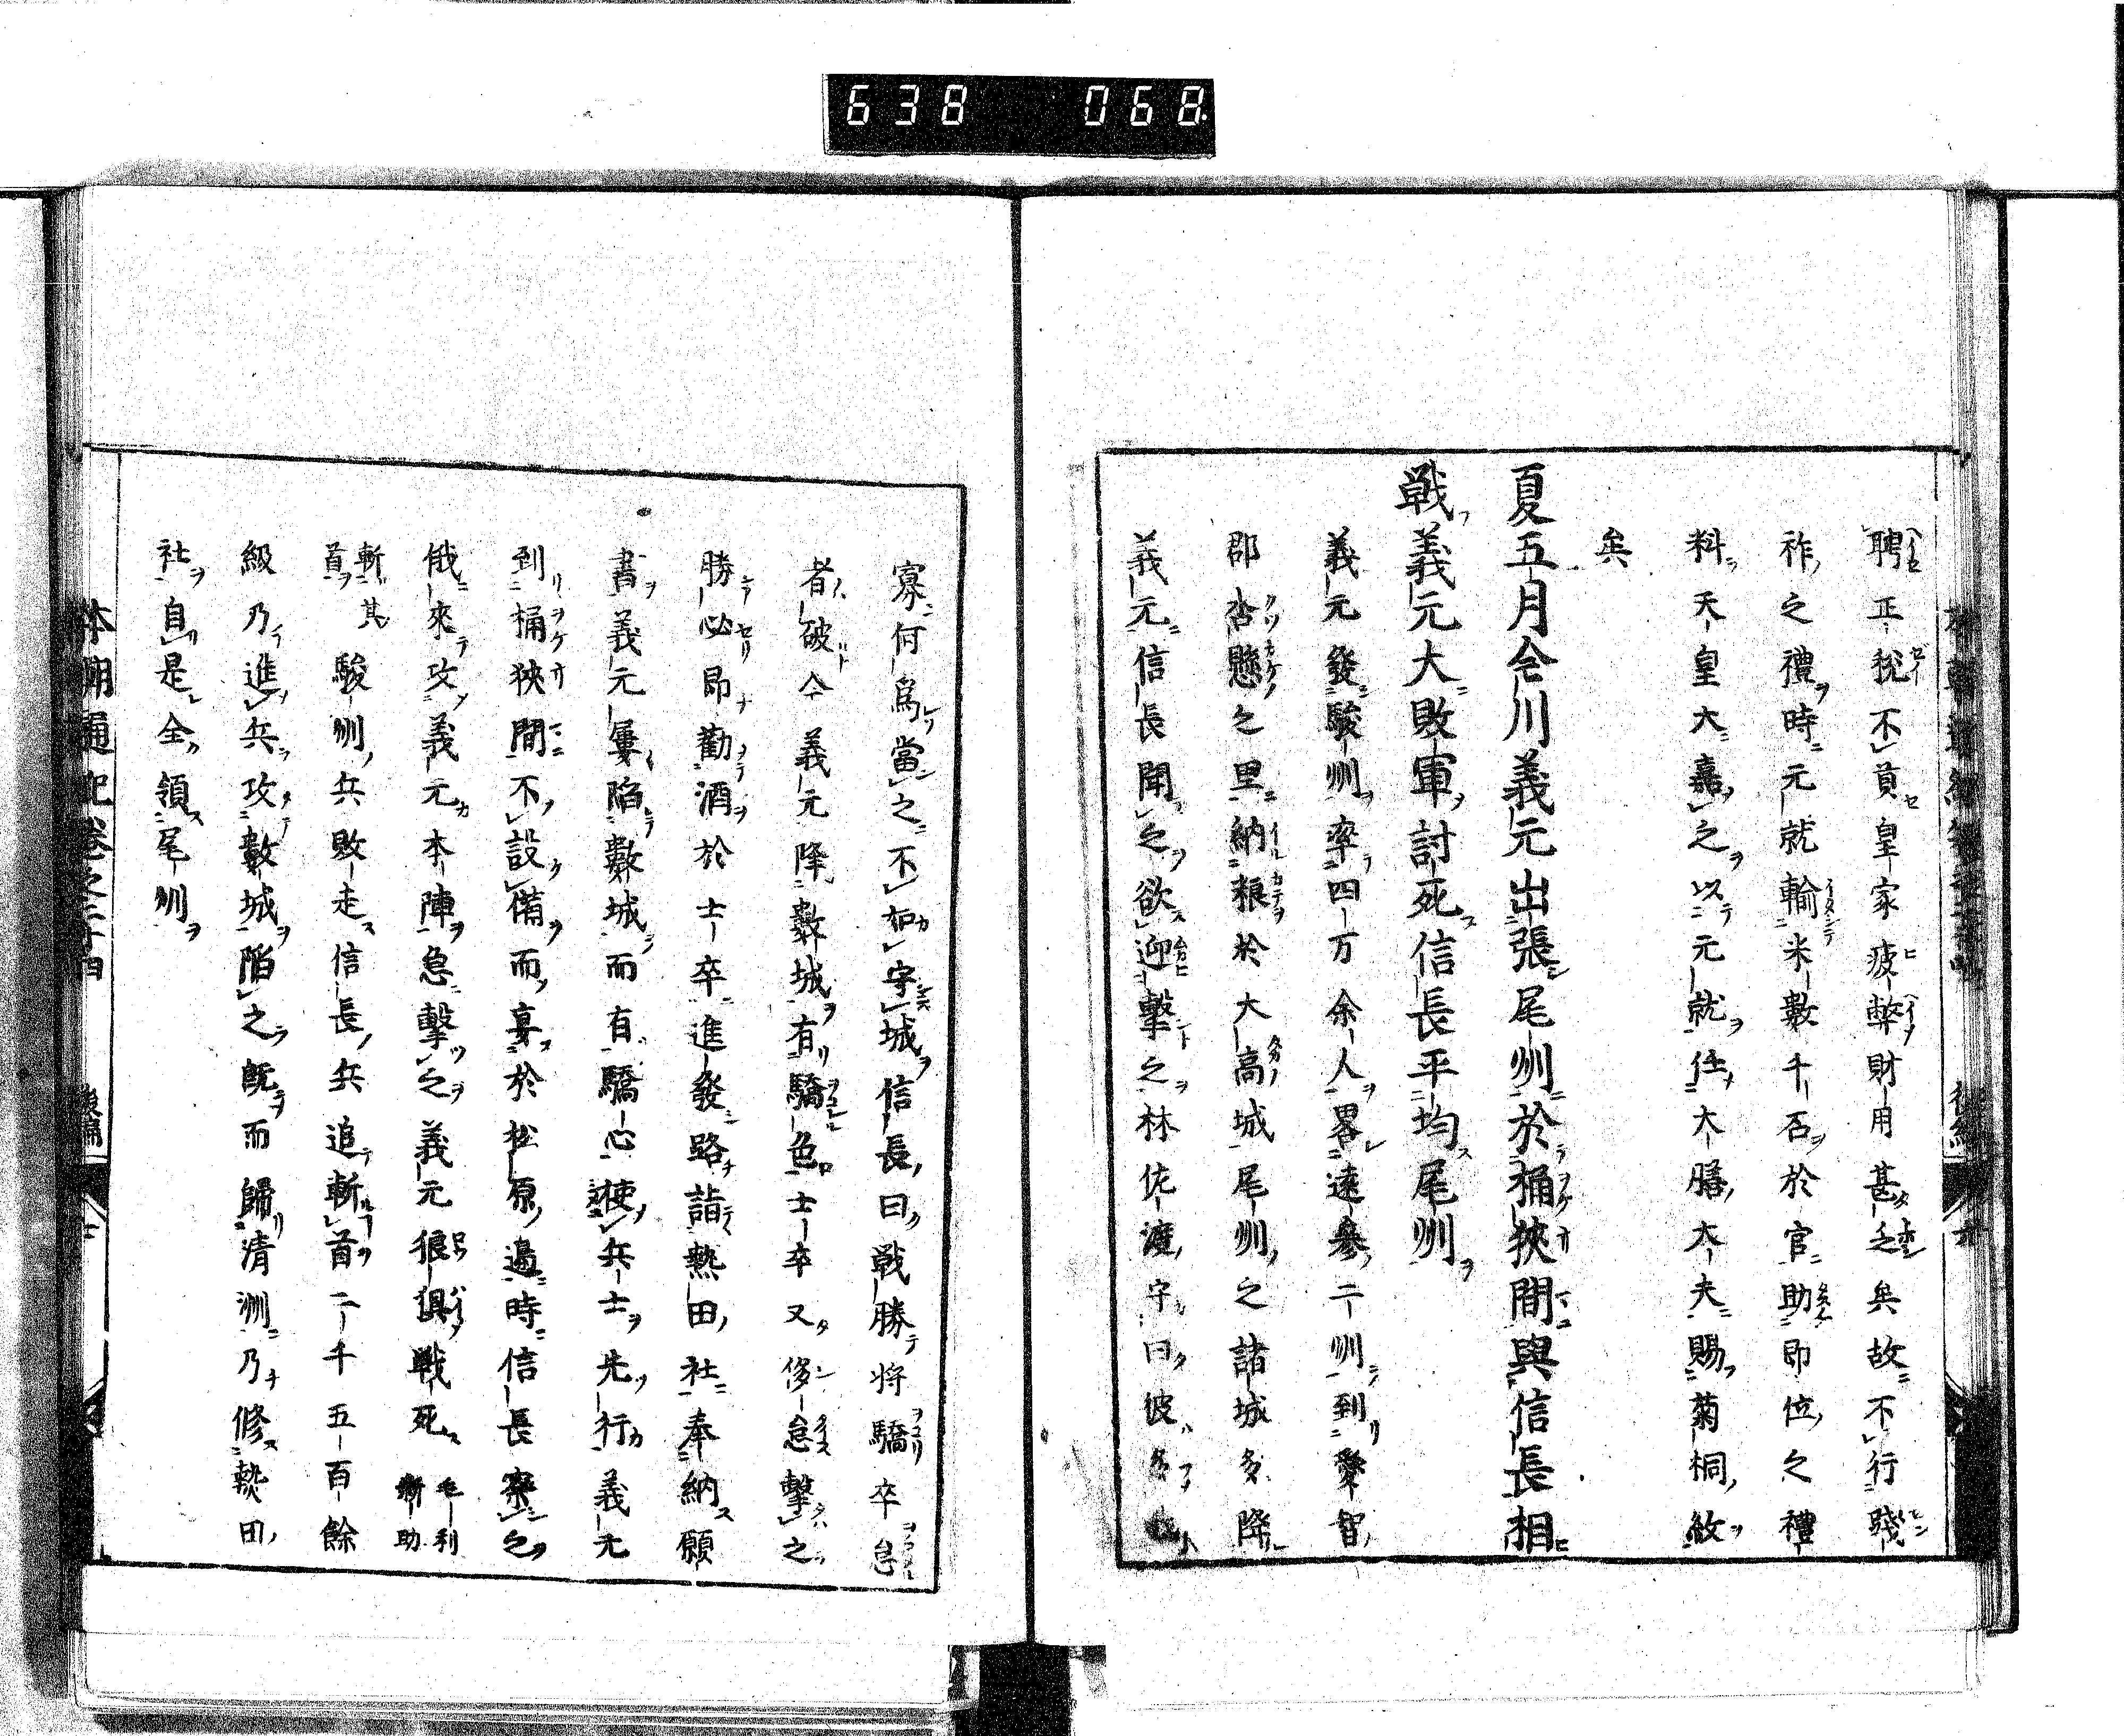 638 068
聘正税不貢皇家疲弊財用甚乏矣故不行踐
祚之禮時元就輸米數千石於官助即位之禮
料天皇大嘉之以元就任大膳大夫賜菊桐敘
矣
夏五月今川義元出張尾州於桶狹間與信長相
戦義元大敗軍討死信長平均尾州
義元發駿州率四万余人畧遠參二州到愛智
郡沓懸之里納粮於大高城尾州之諸城多降
義元信長聞之欲迎擊之林佐渡守曰彼多
寡何為當之不如守城信長曰戦勝将驕卒怠
者破今義元降數城有驕色士卒又侈怠擊之
勝必即勸酒於士卒進發路詣熱田社奉納願
書義元屢陷數城而有驕心使兵士先行義元
到桶狹間不設備而宴於松原邉時信長察之
俄來攻義元本陣急擊之義元狼狽戦死毛利新助
斬其首駿州兵敗走信長兵追斬首二千五百餘
級乃進兵攻數城陷之既而歸清洲乃修熱田
社自是全領尾州
本朝通紀卷之二十四 後編